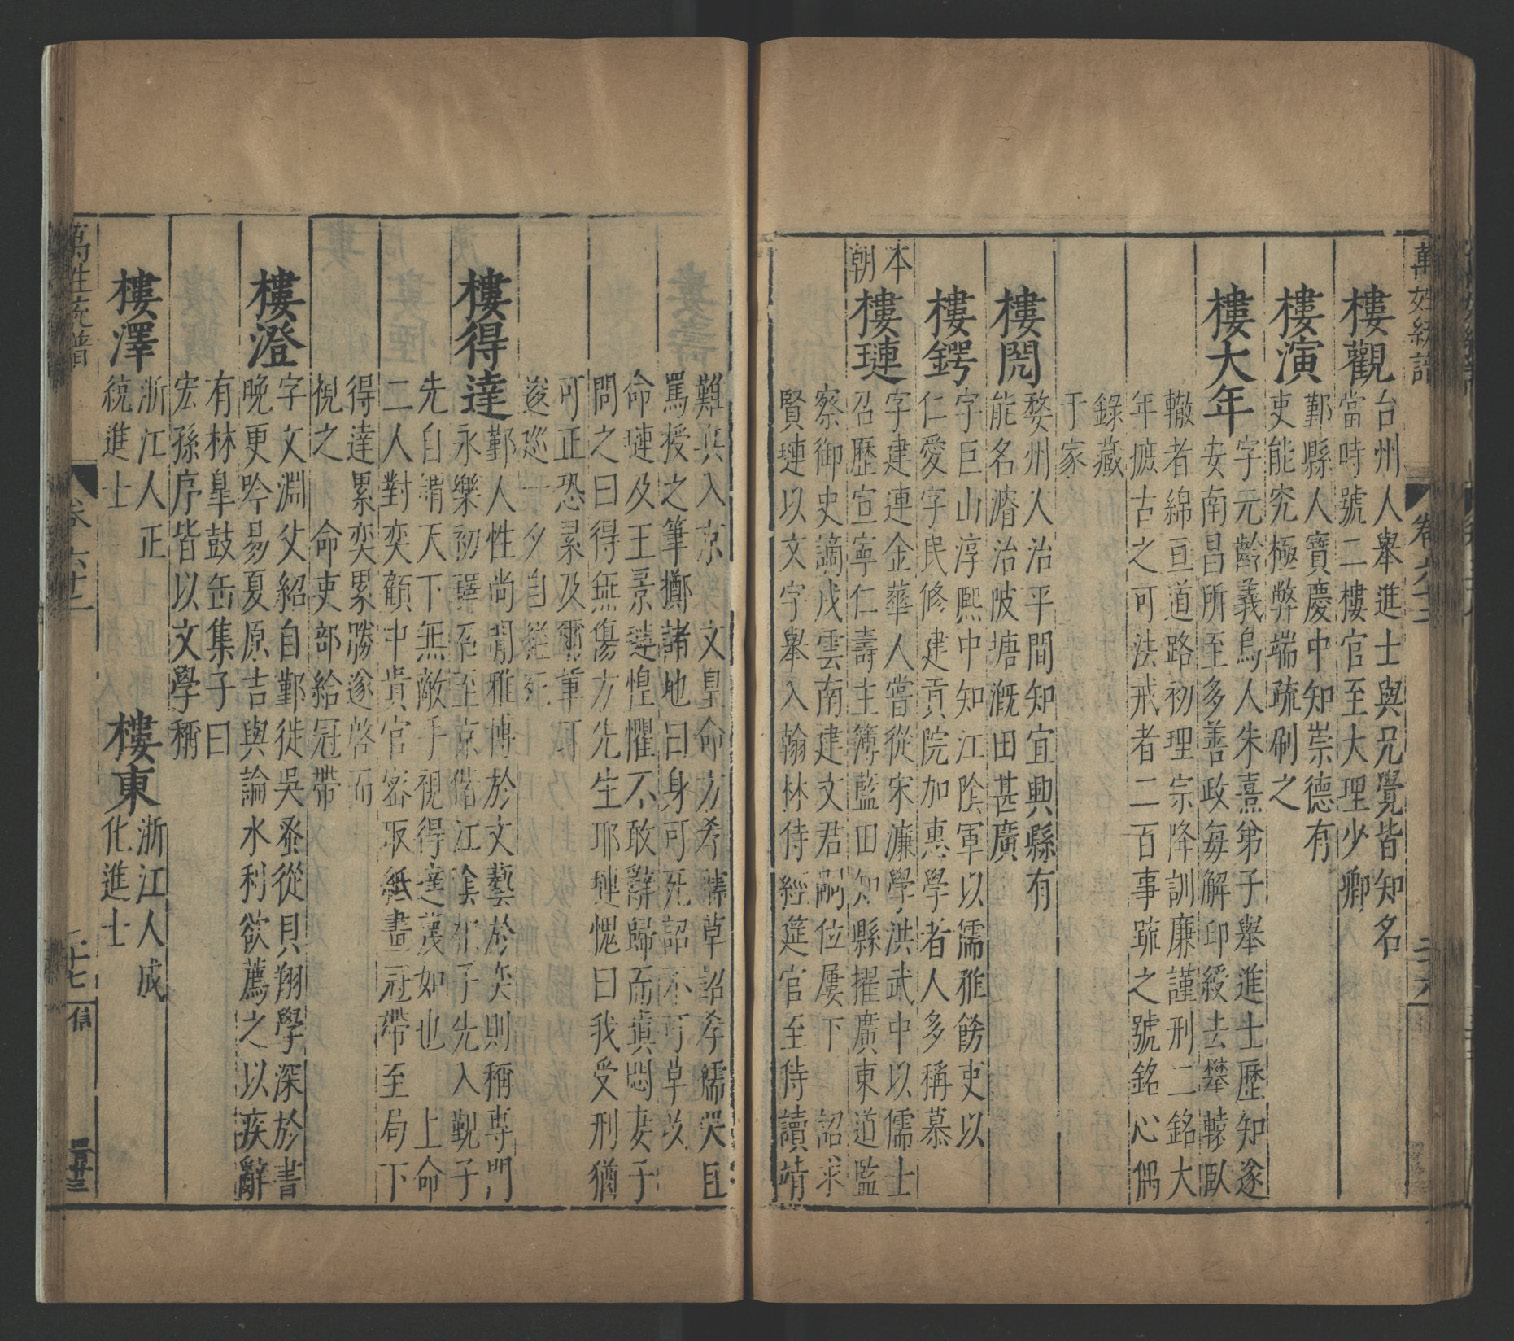 樓觀
台州人舉進士與兄覺皆知名
當時號二樓官至大理少卿
樓演
鄞縣人寶慶中知崇德有
吏能究極弊端疏刷之
樓大年
字元齡義烏人朱熹弟子舉進士歷知遂
安南昌所至多善政每解印綬去攀轅臥
轍者綿亘道路初理宗降訓廉謹刑二銘大
年摭古之可法戒者二百事疏之號銘心偶
錄藏
于家
樓閌
婺州人治平間知宜興縣有
能名濬治陂塘溉田甚廣
樓鍔
字巨山淳熙中知江陰軍以儒雅餝吏以
仁愛字民修建貢院加惠學者人多稱慕
本朝
樓璉
字建連金華人當從宋濂學洪武中以儒士
召歷宣寧仁壽主簿藍田知縣擢廣東道監
察御史謫戍雲南建文君嗣位屢下 詔求
賢璉以文字舉入翰林侍經筵官至侍讀靖
難兵入京 文皇命方孝孺草詔孝孺哭且
罵授之筆擲諸地曰身可死詔不可草次
命璉及王景璉惶懼不敢辭歸而憤悶妻子
問之曰得無傷方先生耶璉愧曰我受刑猶
可正恐累及爾軰
逡巡一夕自經死
樓得達
鄞人性尚閒雅博於文藝於奕則稱專門
永樂初驛召至京偕江陰相子先入覲子
先自謂天下無敵手視得達蔑如也 上命
二人對奕顧中貴官密取紙畫冠帶至局下
得達累奕累勝遂啓而
視之 命吏部給冠帶
樓澄
字文淵父紹自鄞徙吳癸從貝翔學深於書
晚更吟易夏原吉與論水利欲薦之以疾辭
有林臯鼓缶集子曰
宏孫序皆以文學稱
樓澤
浙江人正
統進士
樓東
浙江人成
化進士